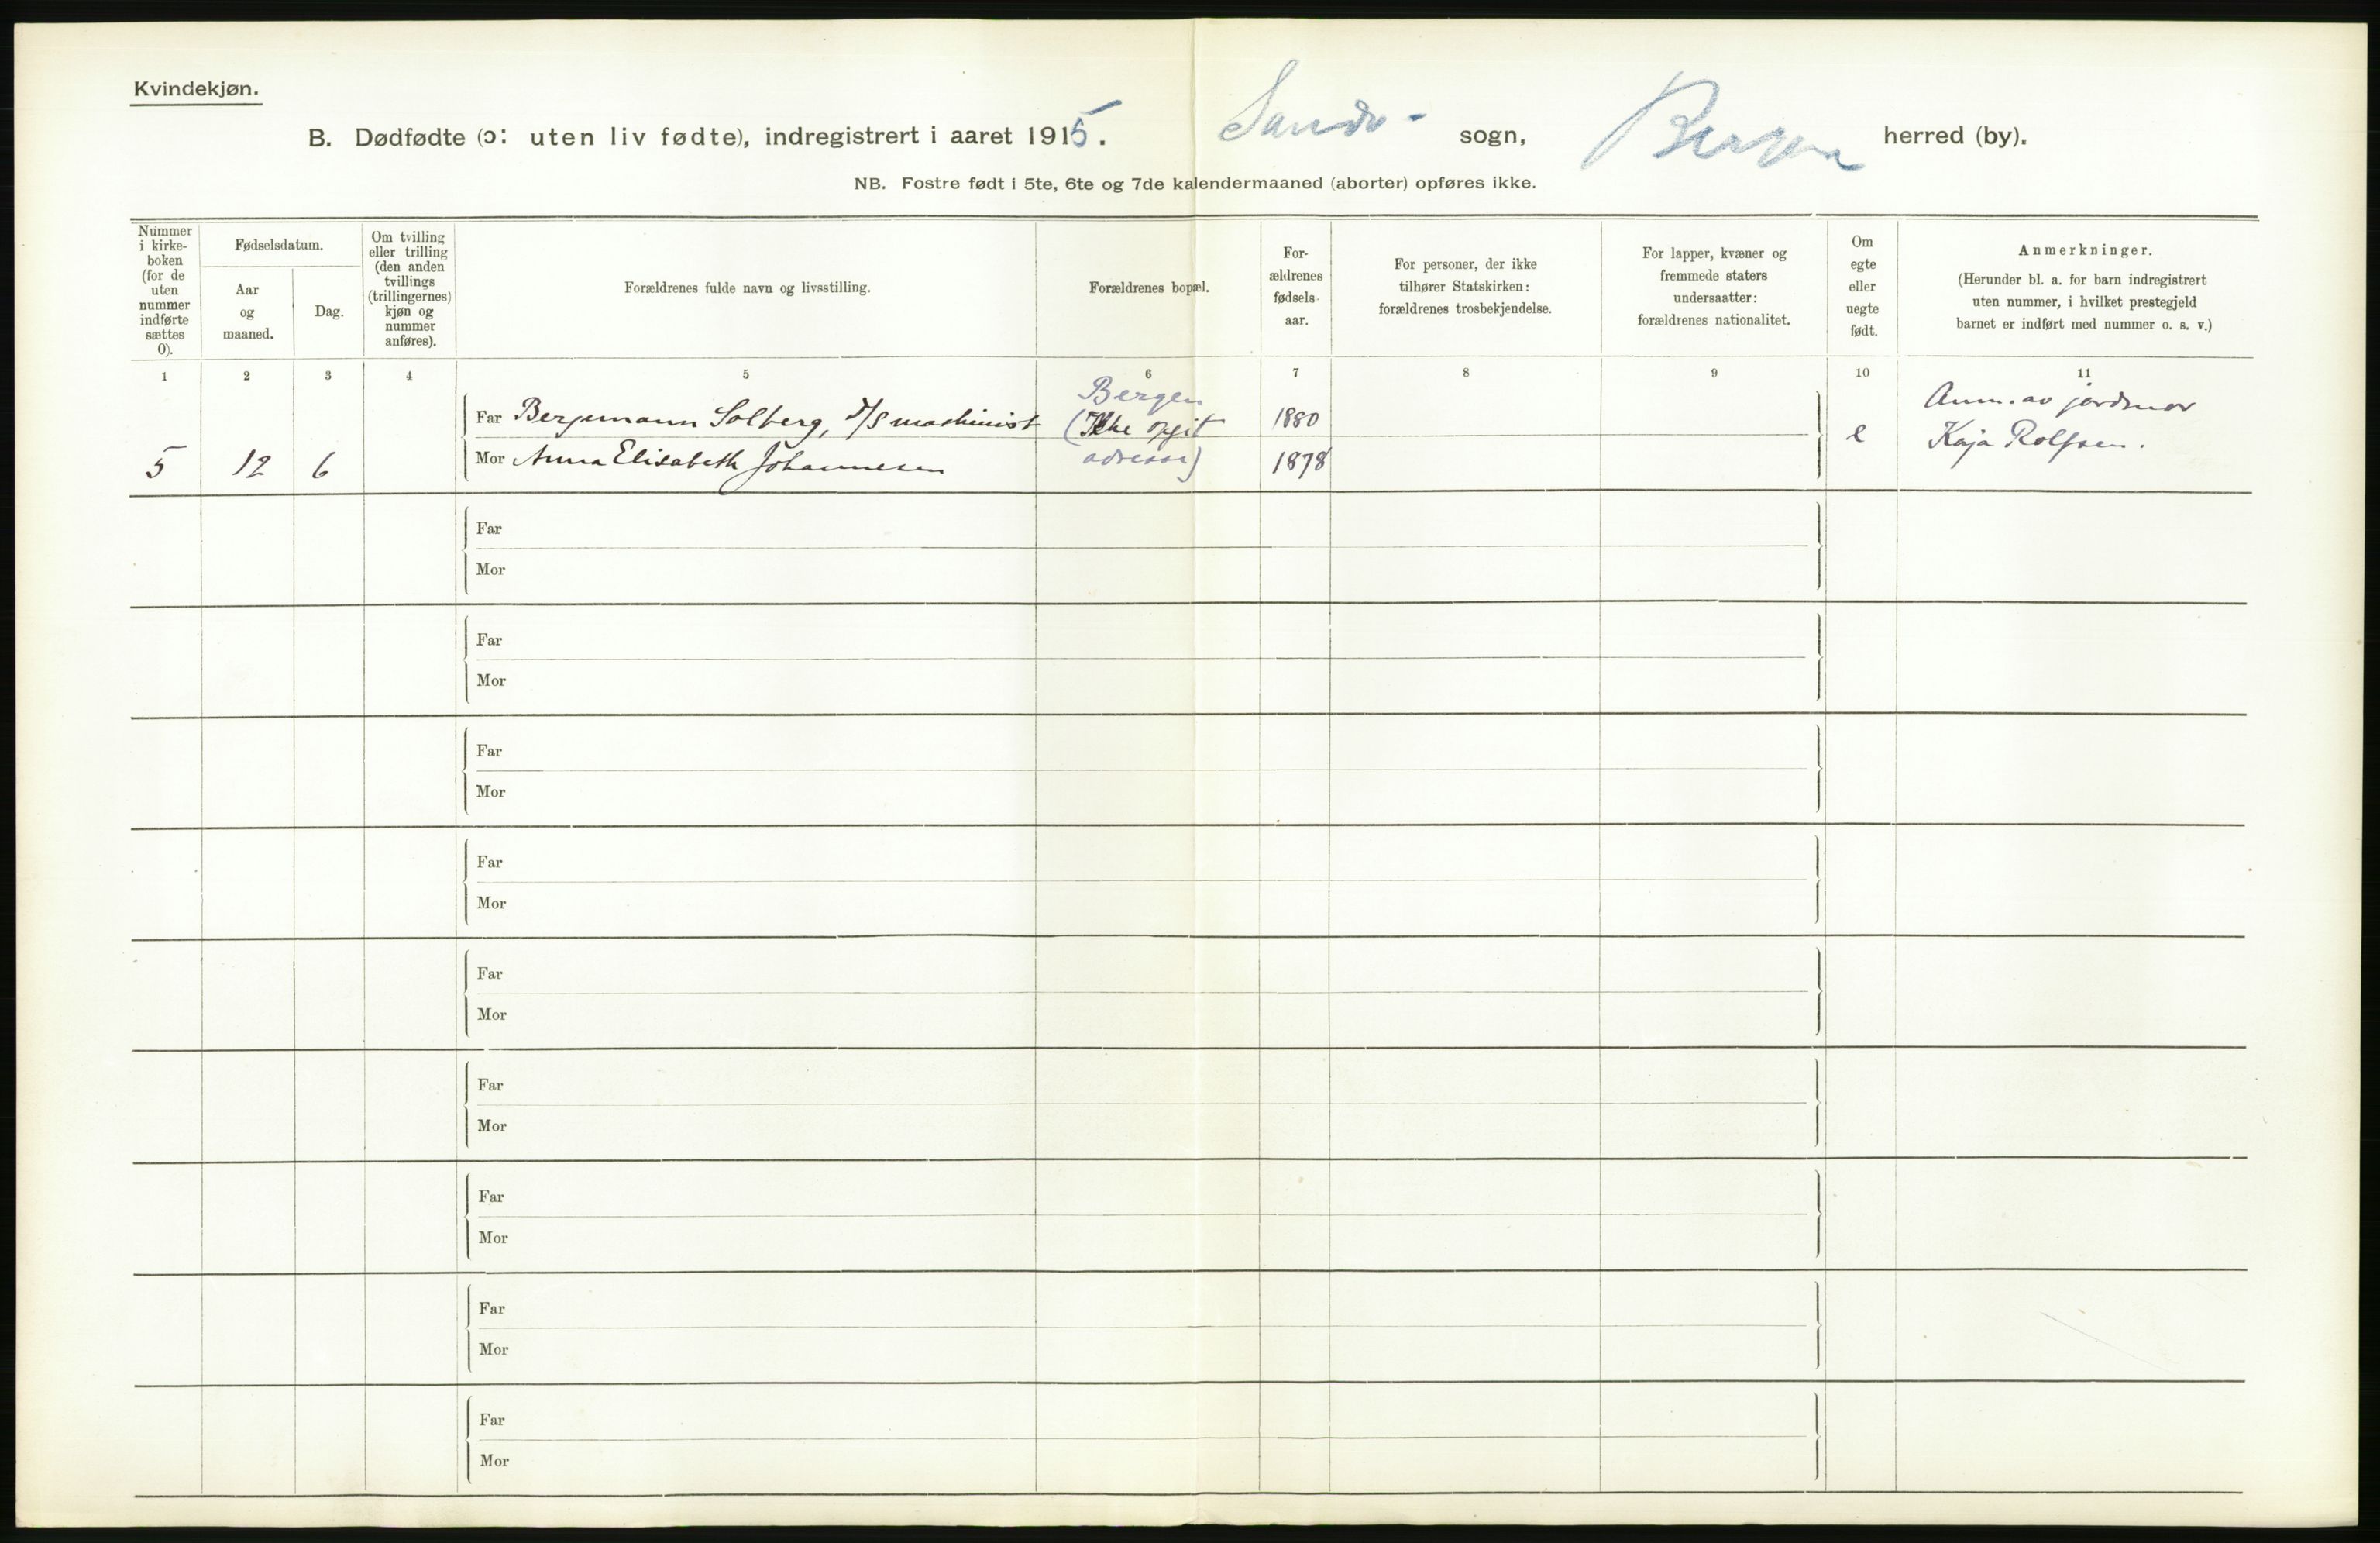 Kvindekjøn.
B. Dødfødte (ɔ: uten liv fødte), indregistrert i aaret 1915. sogn, Bergen herred (by).
NB. Fostre født i 5te, 6te og 7de kalendermaaned (aborter) opføres ikke.
Nummer
i kirke-
boken
(for de
uten
nummer
indførte
sættes
0).
Fødselsdatum.
Aar
og
maaned.
Dag.
Om tvilling
eller trilling
(den anden
tvillings
(trillingernes)
kjøn og
nummer
anføres).
Forældrenes fulde navn og livsstilling.
Forældrenes bopæl.
For-
ældrenes
fødsels-
aar.
For personer, der ikke
tilhører Statskirken:
forældrenes trosbekjendelse.
For lapper, kvæner og
fremmede staters
undersaatter:
forældrenes nationalitet.
Om
egte
eller
uegte
født.
Anmerkninger.
(Herunder bl. a. for barn indregistrert
uten nummer, i hvilket prestegjeld
barnet er indført med nummer o. s. v.)
1 2 3 4 5 6 7 8 9 10 11
5 12 6
Far Bergmann Solberg, D/S maskinist
Mor Anna Elisabeth Johannesen
Bergen
(Ikke opgit
adresse)
1880
1878
e
Anm. av jordmor
Kaja Rolfsen.
Far
Mor
Far
Mor
Far
Mor
Far
Mor
Far
Mor
Far
Mor
Far
Mor
Far
Mor
Far
Mor